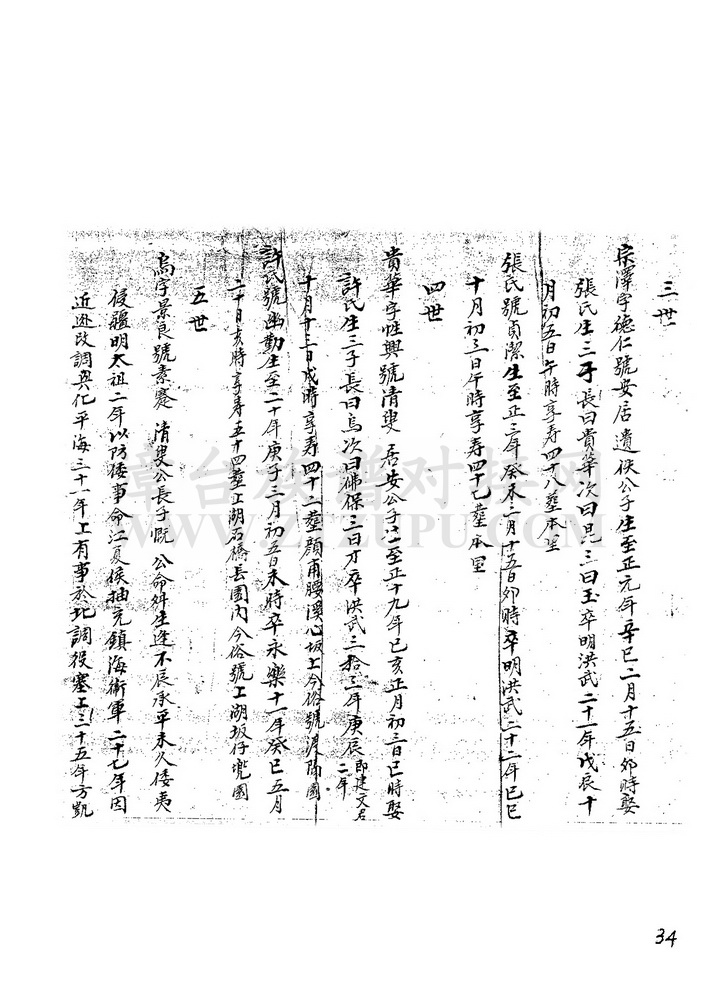 三世
宗澤字德仁號安居遺佚公子生至正元年辛巳二月十五日卯時娶
張氏生三子長曰貴華次曰見三曰玉卒明洪武二十一年戊辰十
月初五日午時享寿四十八塟本里
張氏號貞潔生至正三年癸未二月十五日卯時卒明洪武二十二年已巳
十月初三日午時享寿四十七塟本里
四世
貴華字性興號清叟居安公子生至正十九年已亥正月初三日巳時娶
許氏生三子長曰烏次曰佛保三曰才卒洪武三拾三年庚辰即建文君二年
十月十三日戌時享寿四十二塟顏甬腰溪心坂上今俗號後隔園
許氏號幽勤生至二十年庚子三月初五日未時卒永樂十一年癸巳五月
二十日亥時享寿五十四塟上湖石橋長園內今俗號上湖坂仔兜園
五世
烏字景良號素蹇清叟公長子慨公命舛生逢不辰承平未久倭夷
侵疆明太祖二年以防倭事命江夏侯抽充鎮海衛軍二十七年因
近逖改調興化平海三十一年上有事於北調役塞上三十五年方凱
34
章台族谱对接网
WWW.ZTZUPU.COM